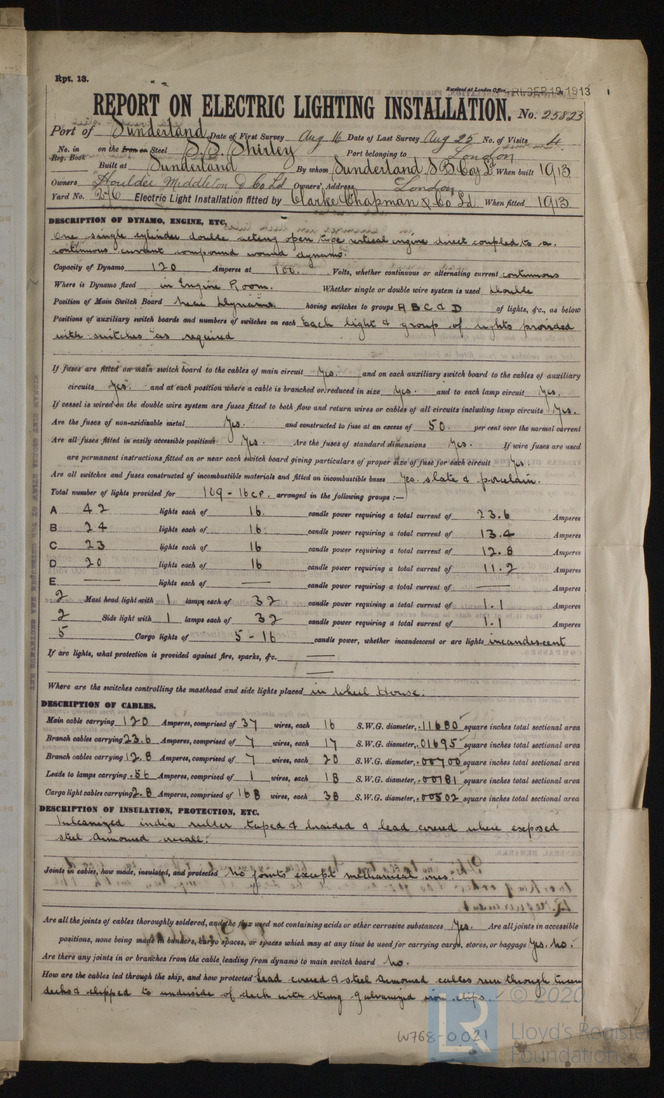 Rpt. 13.
Received at London Office FRI. SEP. 19. 1913
REPORT ON ELECTRIC LIGHTING INSTALLATION. No. 25823
Port of Sunderland Date of First Survey Aug 16 Date of Last Survey Aug 25 No. of Visits 4
No. in Reg. Book on the Iron or Steel S.S. Shirley Port belonging to London
Built at Sunderland By whom Sunderland S B Co Ld When built 1913
Owners Houlder Middleton & Co Ld Owners' Address London
Yard No. 276 Electric Light Installation fitted by Clarke Chapman & Co Ld. When fitted 1913
DESCRIPTION OF DYNAMO, ENGINE, ETC.
One single cylinder double acting open type vertical engine direct coupled to a
continuous current compound wound dynamo.
Capacity of Dynamo 120 Amperes at 100 Volts, whether continuous or alternating current continuous
Where is Dynamo fixed in Engine Room. Whether single or double wire system is used double
Position of Main Switch Board near Dynamo having switches to groups A B C & D of lights, &c., as below
Positions of auxiliary switch boards and numbers of switches on each Each light & group of lights provided
with switches as required
If fuses are fitted on main switch board to the cables of main circuit Yes. and on each auxiliary switch board to the cables of auxiliary
circuits Yes. and at each position where a cable is branched or reduced in size Yes. and to each lamp circuit Yes.
If vessel is wired on the double wire system are fuses fitted to both flow and return wires or cables of all circuits including lamp circuits Yes.
Are the fuses of non-oxidizable metal Yes. and constructed to fuse at an excess of 50. per cent over the normal current
Are all fuses fitted in easily accessible positions Yes. Are the fuses of standard dimensions Yes. If wire fuses are used
are permanent instructions fitted on or near each switch board giving particulars of proper size of fuse for each circuit Yes.
Are all switches and fuses constructed of incombustible materials and fitted on incombustible bases Yes. slate & porcelain.
Total number of lights provided for 109 - 16 C.P. arranged in the following groups :—
A 42 lights each of 16 candle power requiring a total current of 23.6 Amperes
B 24 lights each of 16 candle power requiring a total current of 13.4 Amperes
C 23 lights each of 16 candle power requiring a total current of 12.8 Amperes
D 20 lights each of 16 candle power requiring a total current of 11.2 Amperes
E — lights each of — candle power requiring a total current of — Amperes
2 Mast head light with 1 lamps each of 32 candle power requiring a total current of 1.1 Amperes
2 Side light with 1 lamps each of 32 candle power requiring a total current of 1.1 Amperes
5 Cargo lights of 5 - 16 candle power, whether incandescent or arc lights incandescent
If arc lights, what protection is provided against fire, sparks, &c. —
Where are the switches controlling the masthead and side lights placed in Wheel House.
DESCRIPTION OF CABLES.
Main cable carrying 120 Amperes, comprised of 37 wires, each 16 S.W.G. diameter, .11680 square inches total sectional area
Branch cables carrying 23.6 Amperes, comprised of 7 wires, each 17 S.W.G. diameter, .01695 square inches total sectional area
Branch cables carrying 12.8 Amperes, comprised of 7 wires, each 20 S.W.G. diameter, .00700 square inches total sectional area
Leads to lamps carrying .56 Amperes, comprised of 1 wires, each 18 S.W.G. diameter, .00181 square inches total sectional area
Cargo light cables carrying 2.8 Amperes, comprised of 168 wires, each 38 S.W.G. diameter, .00502 square inches total sectional area
DESCRIPTION OF INSULATION, PROTECTION, ETC.
Vulcanized india rubber taped & braided & lead covered where exposed
steel armoured overall.
Joints in cables, how made, insulated, and protected No joints except mechanical ones.
Are all the joints of cables thoroughly soldered, and the flux used not containing acids or other corrosive substances Yes. Are all joints in accessible
positions, none being made in bunkers, cargo spaces, or spaces which may at any time be used for carrying cargo, stores, or baggage Yes. No.
Are there any joints in or branches from the cable leading from dynamo to main switch board No.
How are the cables led through the ship, and how protected Lead covered & steel armoured cables run through tween
decks & clipped to underside of deck with strong galvanized iron clips.
© 2020
LR Lloyd's Register
Foundation
W768-0021